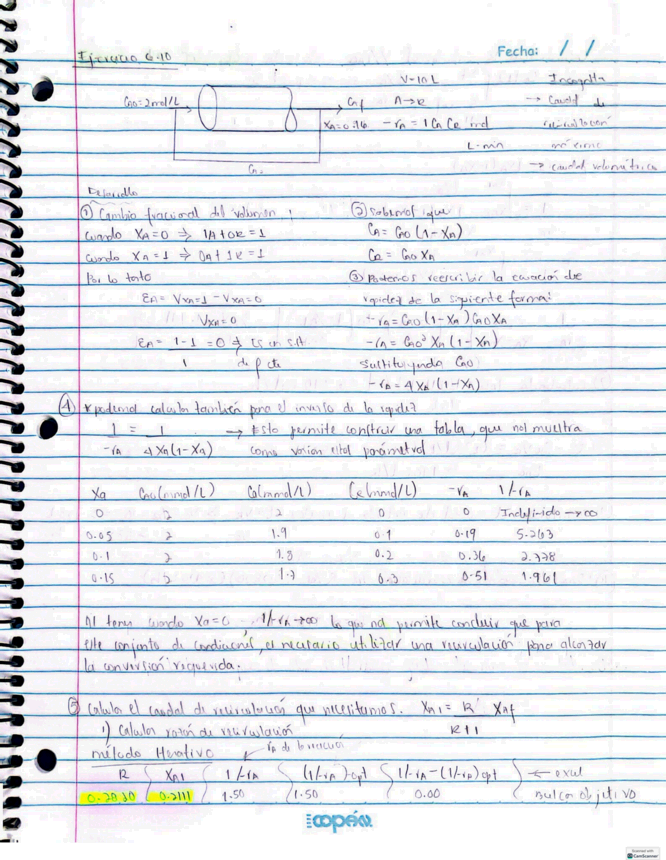 Ejercicio 6.10
Fecha: / /
V=10 L
Incognita
CA0=2mol/L
CAf
A→R
→ Caudal de
XA=0.76
-rA = 1 CA CR mol
recirculación
L·min
→ caudal volumétrico
Desarrollo
① Cambio fraccional del volumen:
cuando XA=0 ⇒ 1A+0R=1
cuando XA=1 ⇒ 0A+1R=1
Por lo tanto
εA= VXA=1 - VXA=0
VXA=0
εA= 1-1 = 0
1
② Sabemos que
CA= CA0 (1-XA)
CR = CA0 XA
③ Podemos reescribir la ecuación de
rapidez de la siguiente forma:
-rA= CA0 (1-XA) CA0 XA
-rA= CA0² XA (1-XA)
Sustituyendo CA0
-rA= 4 XA (1-XA)
④ * podemos calcular también para el inverso de la rapidez
1 = 1 → Esto permite construir una tabla, que nos muestra
-rA 4 XA(1-XA) como varian estos parámetros
XA CA0(mmol/L) CA(mmol/L) CR(mmol/L) -rA 1/-rA
0 2 2 0 0 Indefinido →∞
0.05 2 1.9 0.1 0.19 5.263
0.1 2 1.8 0.2 0.36 2.778
0.15 2 1.7 0.3 0.51 1.961
Al tener cuando XA=0 1/-rA→∞ lo que nos permite concluir que para
este conjunto de condiciones, es necesario utilizar una recirculación para alcanzar
la conversión requerida.
⑤ Calcular el caudal de recirculación que necesitamos. XA1= R XAf
R+1
1) Calcular razón de recirculación
método Iterativo
rA de la reacción
R XA1 1/-rA (1/-rA)opt 1/-rA-(1/-rA)opt ← excel
0.2111 1.50 1.50 0.00 buscar objetivo
copán
Scanned with
CamScanner